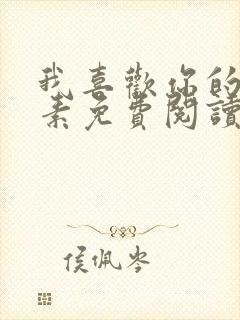 我喜歡你的
素免費閱讀
侯佩岑